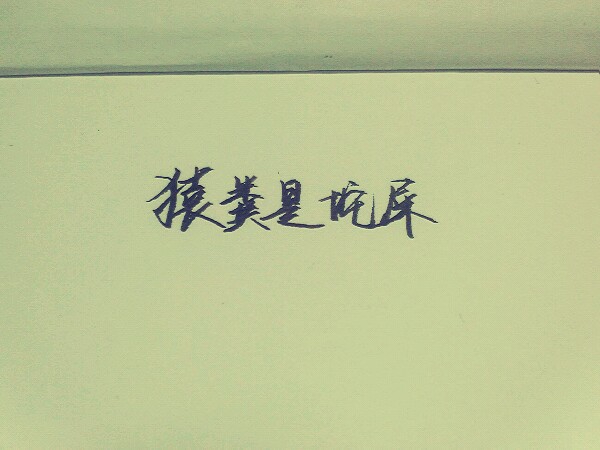 猿粪是坨屎